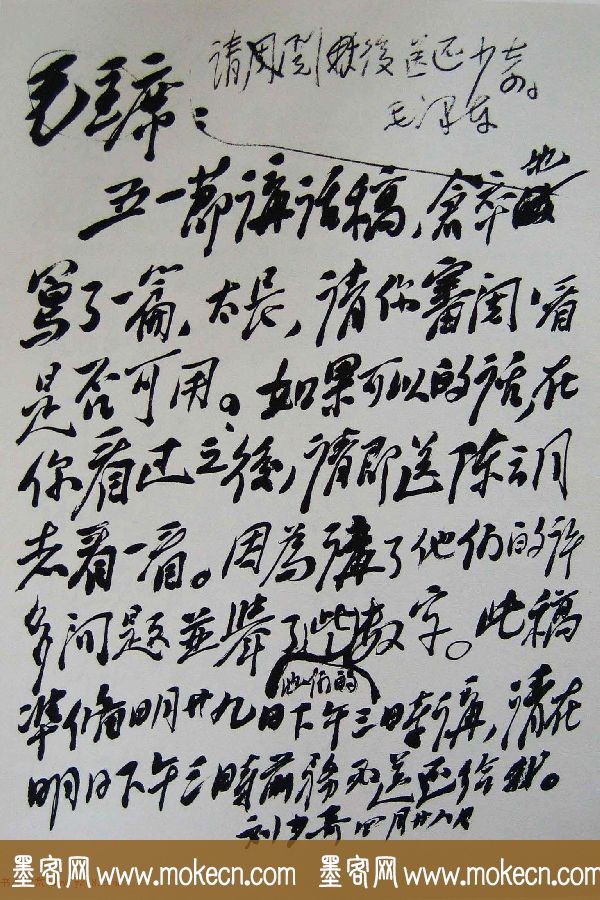 毛主席：
请周阅後送还少奇。
毛泽东
五一节讲话稿，仓卒地
写了一篇，太长，请你審阅，看
是否可用。如果可以的话，在
你看过之後，请即送陈云同
志看一看。因為讲了他们的许
多问题並舉了些数字。此稿
他们的
準備明廿九日下午三時讲，请在
明日下午三時前務必送还给我。
刘少奇 四月廿八日
墨客网 www.mokecn.com 墨客网 www.mokecn.com